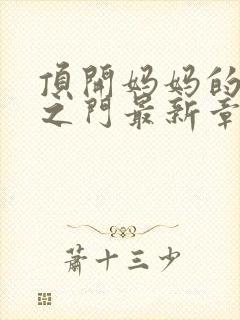 頂開妈妈的
之門最新章
蕭十三少